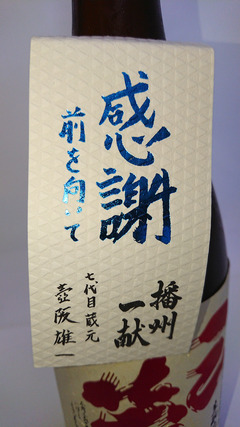 感謝
前を向いて
播州
一献
七代目蔵元
壺阪雄一